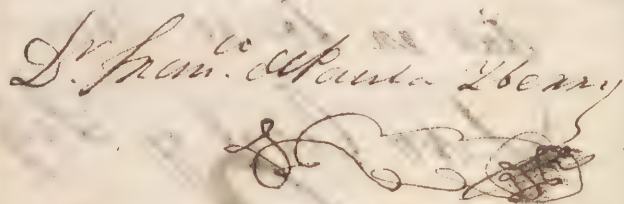 Dr. Franco. de Paula Yberri